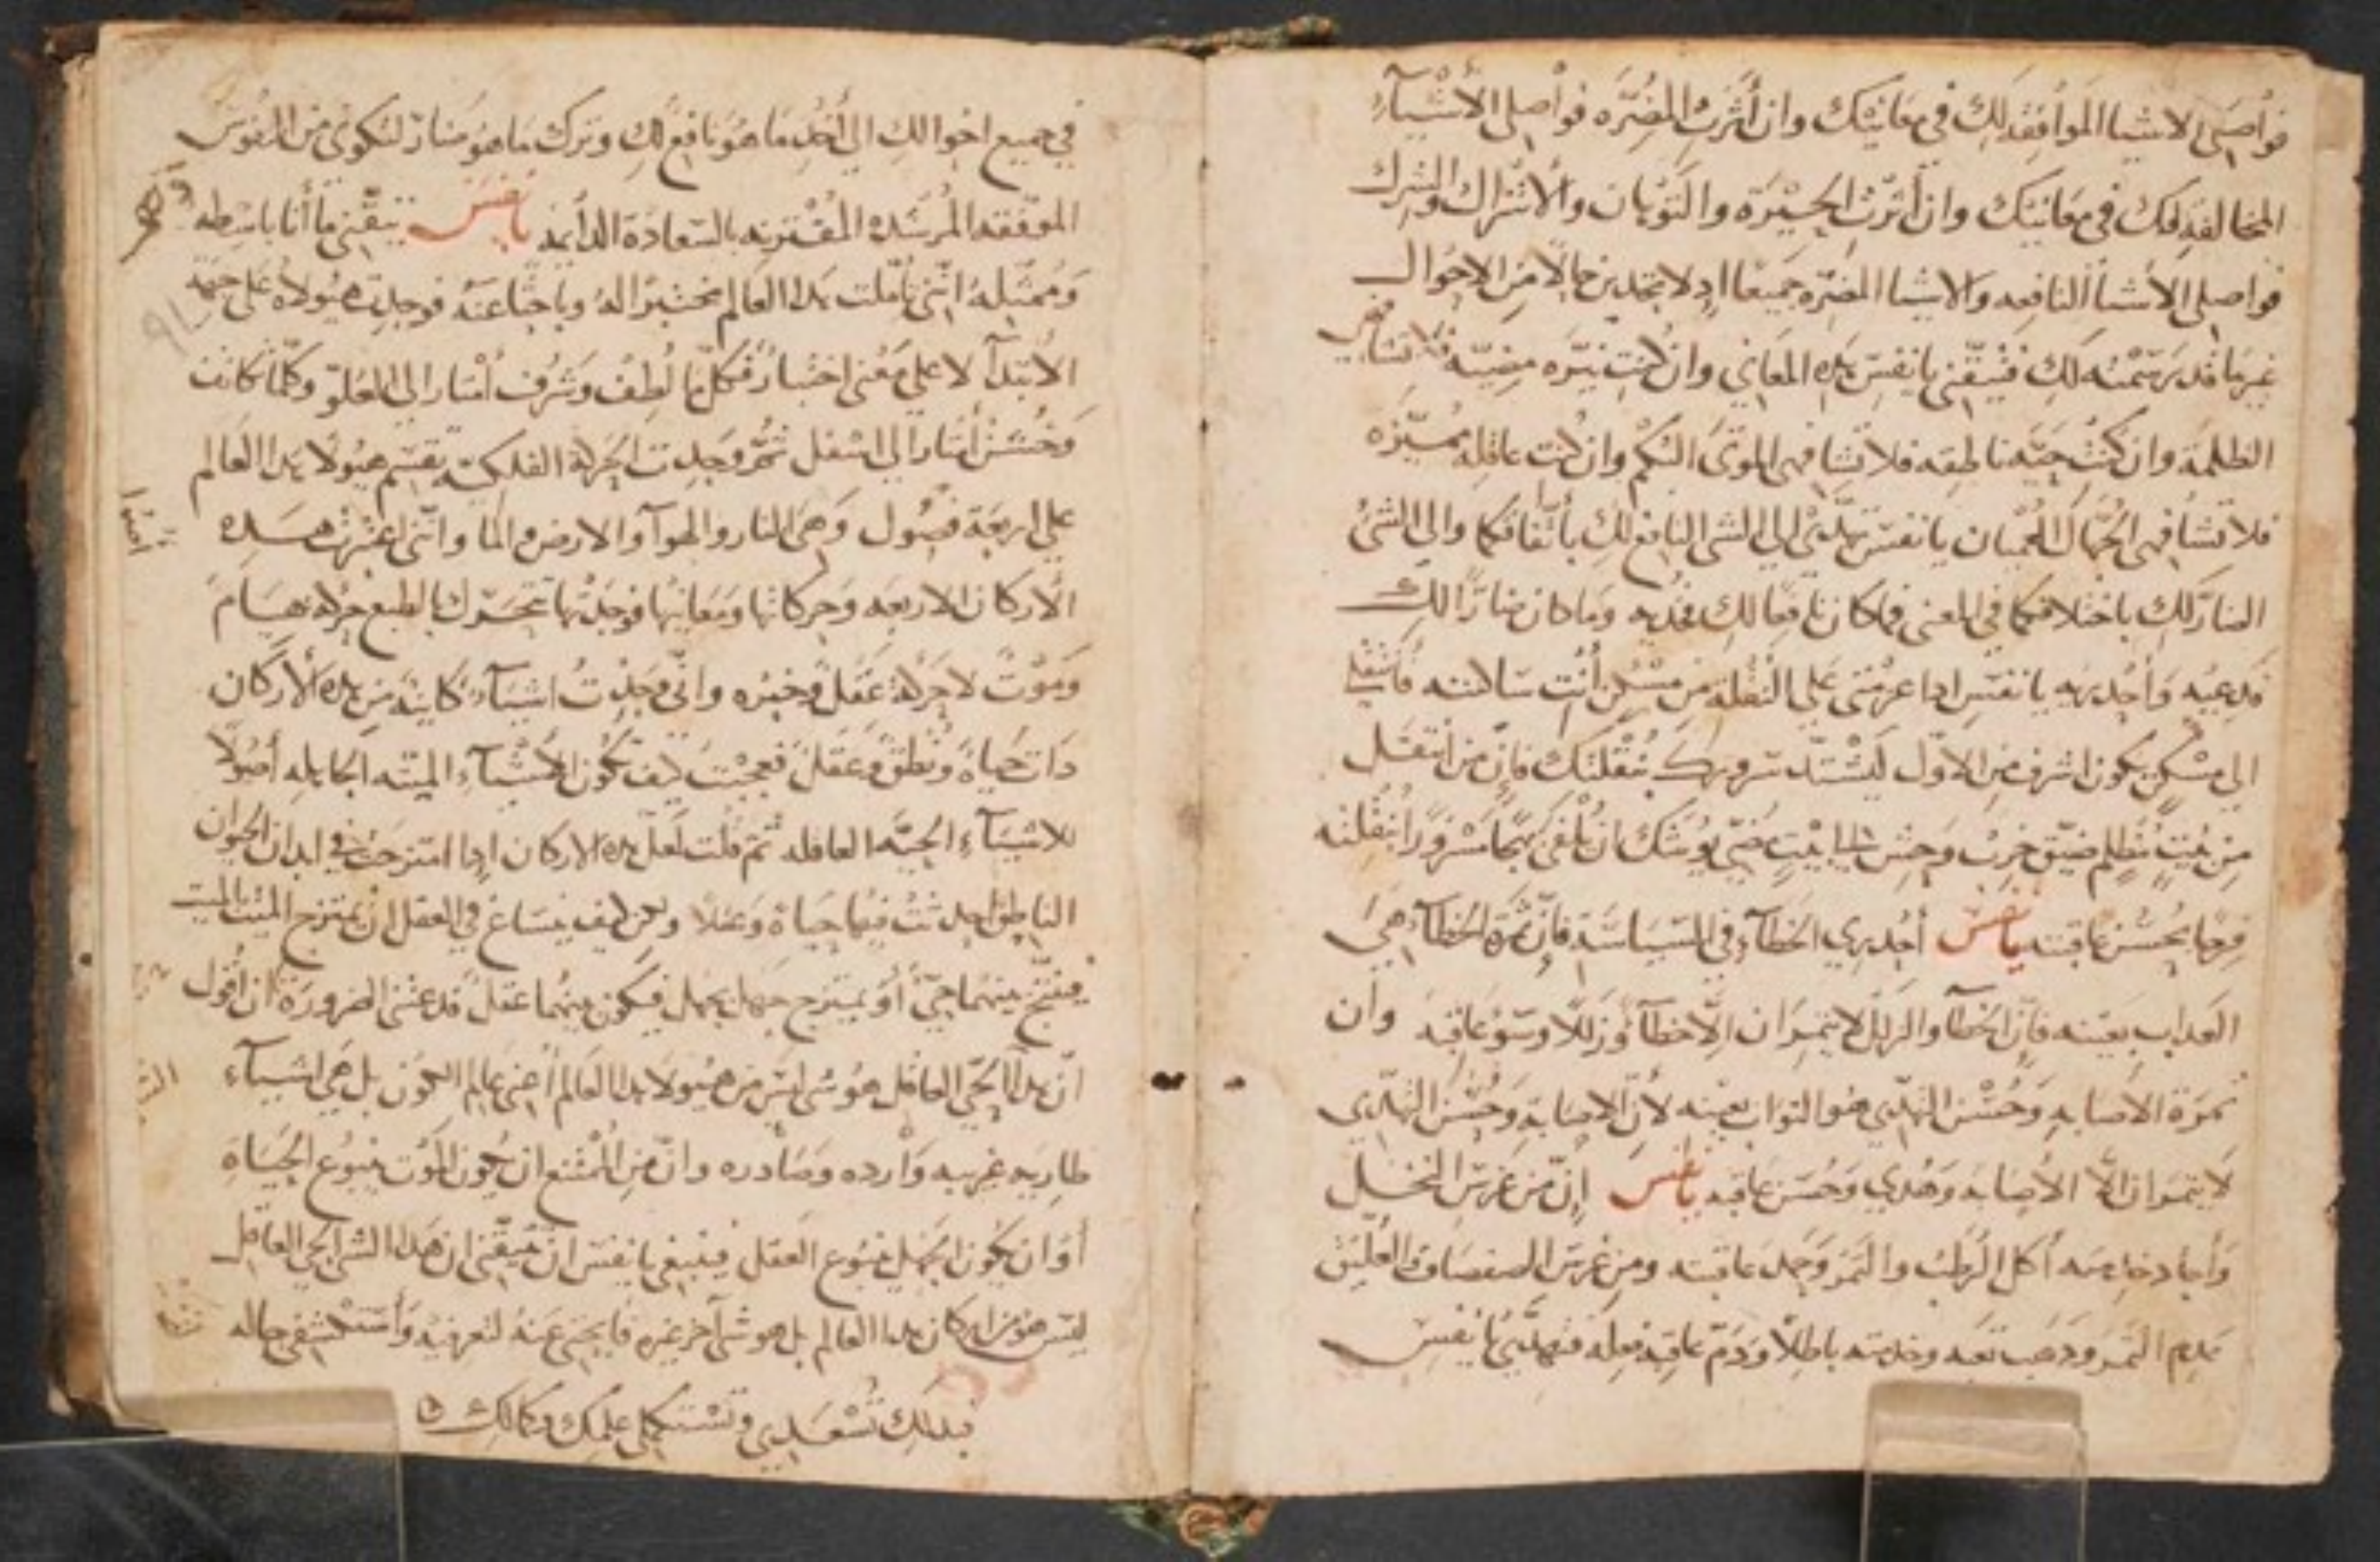 فواصلى الاشيا الموافقه لك في معانيك وان أثرت المضره فواصلى الأشيآء
المخالفه لك في معانيك وان أثرت الحيرة والتوهان والأشتراك والشرك
فواصلى الأشيا النافعه والاشيا المضره جميعا اد لا تجدين حالا من الاحوال
غير ما قد رسمته لك فتيقنى يا نفس هده المعاني وان كنت نيره مضيه فلا تشافهي
الظلمة وان كنت حيه ناطقه فلا تشافهى الموتى البكم وان كنت عاقله مميزه
فلا تشافهى الجهال العميان يا نفس تهدى الى الشى النافع لك بأتفاقكما والى الشى
الضار لك باختلافكما في المعنى فما كان نافعا لك فخديه وما كان ضارا لك
فدعيه وأحدريه يا نفس ادا عزمتى على النقلة من مسكن أنت ساكنته فأنتقلي
الى مسكن يكون اشرف من الاول ليشتد سرورك بنقلتك فان من أنتقل
من بيت مظلم ضيق خرب وحش الى بيت مضى يوشك ان يلفى بهجا مسرورا بنقلته
فرحا بحسن عاقبته يا نفس أحدري الخطآء في السياسة فان ثمرة الخطآء هي
العداب بعينه فان الخطآ والزلل لا يثمران الا خطآ وزللا وسؤ عاقبه وأن
ثمرة الأصابه وحسن التهدى هو التواب بعينه لأن الاصابة وحسن التهدي
لا يثمران الا الأصابه وهدي وحسن عاقبه يا نفس إن من غرس النخل
وأجاد خدمته أكل الرطب والتمر وحمد عاقبته ومن غرس الصفصاف والعليق
عدم الثمر ودهب تعبه وخدمته باطلا ودم عاقبة فعله فتهدى يا نفس
في جميع احوالك الى أخد ما هو نافع لك وترك ما هو ضار لتكوني من النفوس
الموفقه المرشده المقترنه بالسعادة الدايمه يا نفس تيقنى ما أنا باسطه
وممثله انني تاملت هدا العالم مختبرا له وباحثا عنه فوجدت هيولاه على جهة
الابتدآ لا على معنى اختيار فكل ما لطف وشرف أشار الى العلو وكلما كانت
وخشن أشار الى السفل ثم وجدت الحركة الفلكية تقسم هيولا هدا العالم
على اربعة فصول وهي النار والهوآ والارض والما وانني اعتبرت هده
الأركان الاربعه وحركاتها ومعانيها فوجدتها تتحرك بالطبع حركة
وموت لا حركة عقل وخبره واني وجدت اشيآء كاينة من هده الأركان
دات حياة ونطق وعقل فعجبت كيف تكون الأشيآء الميته الجاهله أصولا
للاشيآء الحيه العاقله ثم قلت لعل هده الاركان ادا امتزجت في ابدان الحيوان
الناطق احدثت فيها حياة وعقلا ولكن كيف ينساغ في العقل ان يمتزج الميت بالميت
فينتج بينهما حي أو يمتزج جهل بجهل فيكون بينهما عقل فدعتنى الضرورة ان أقول
ان هدا الحي العاقل هو شى ليس من هيولا هدا العالم أعنى عالم الكون بل هي اشيآء
طاريه غريبه وارده وصادره وان من الممتنع ان يكون الموت ينبوع الحياة
أو ان يكون الجهل ينبوع العقل فينبغي يا نفس ان تتيقني ان هدا الشى الحي العاقل
ليس هو من اركان هدا العالم بل هو شى آخر غيره فابحثى عنه لتعرفيه وأستكشفى حاله
فبدلك تسعدي وتستكملي علمك وكمالك